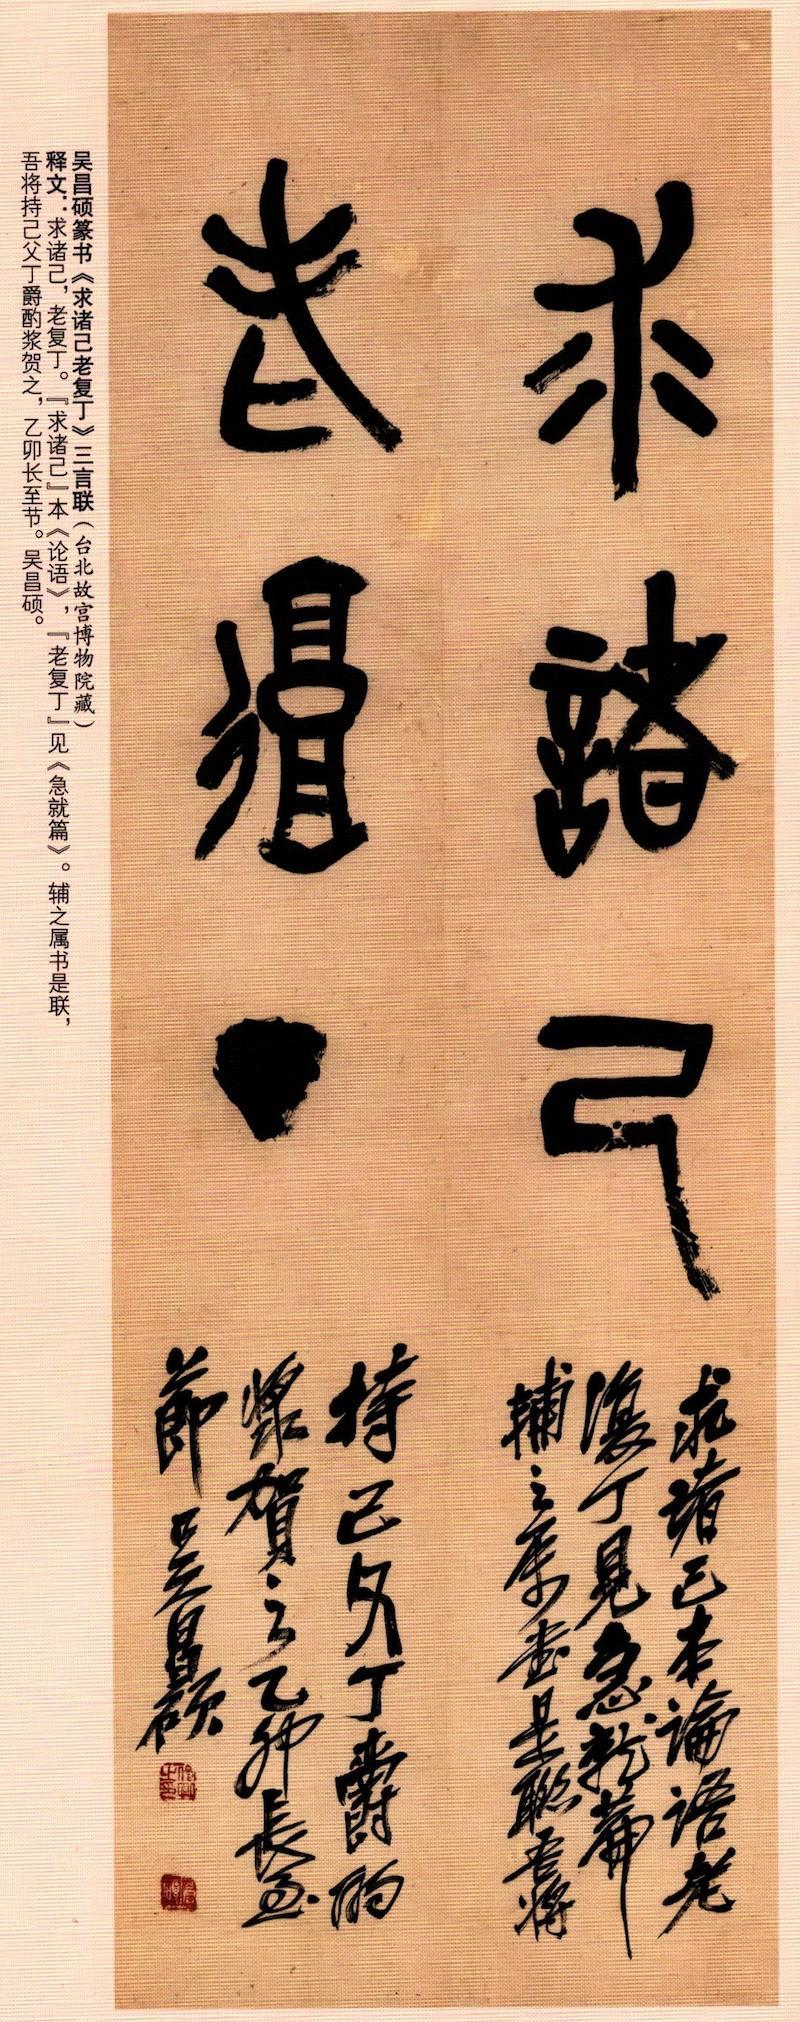 求諸己
求諸己本論語老
復丁見急就篇
輔之属書是聯吾將
老復丁
持己父丁爵酌
漿賀之乙卯長至
節吴昌碩
吴昌硕篆书《求诸己老复丁》三言联（台北故宫博物院藏）
释文：求诸己，老复丁。『求诸己』本《论语》，『老复丁』见《急就篇》。辅之属书是联，
吾将持己父丁爵酌浆贺之，乙卯长至节。吴昌硕。